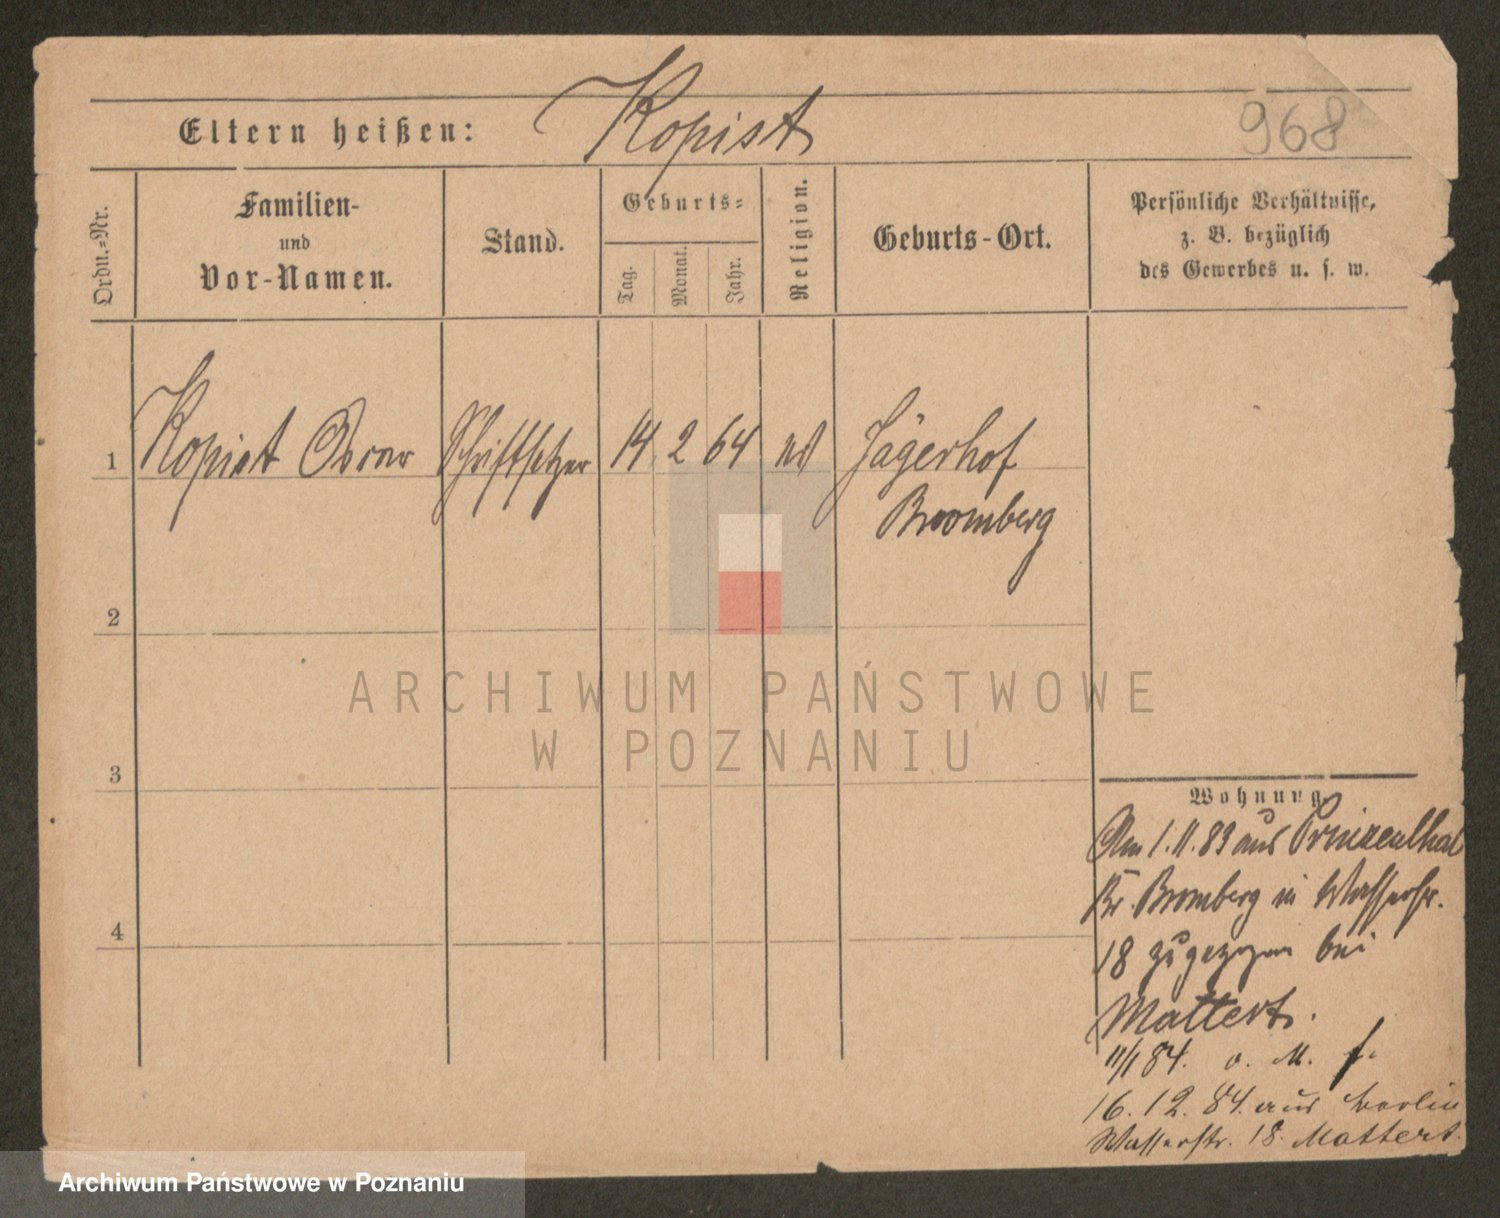 968
Eltern heißen: Kopist
Ordn.-Nr.
Familien-
und
Vor-Namen.
Stand.
Geburts-
Tag.
Monat.
Jahr.
Religion.
Geburts-Ort.
Persönliche Verhältnisse,
z. B. bezüglich
des Gewerbes u. s. w.
1 Kopist Oscar Schriftsetzer 14 2 64 Jägerhof
Bromberg
2
3
4
ARCHIWUM PAŃSTWOWE
W POZNANIU
Wohnung.
Am 1.11.83 aus Prinzenthal
Kr. Bromberg in Wasserstr.
18 zugezogen bei
Mattert.
11/1 84. o. M. f.
16.12.84. aus Berlin
Wasserstr. 18. Mattert.
Archiwum Państwowe w Poznaniu